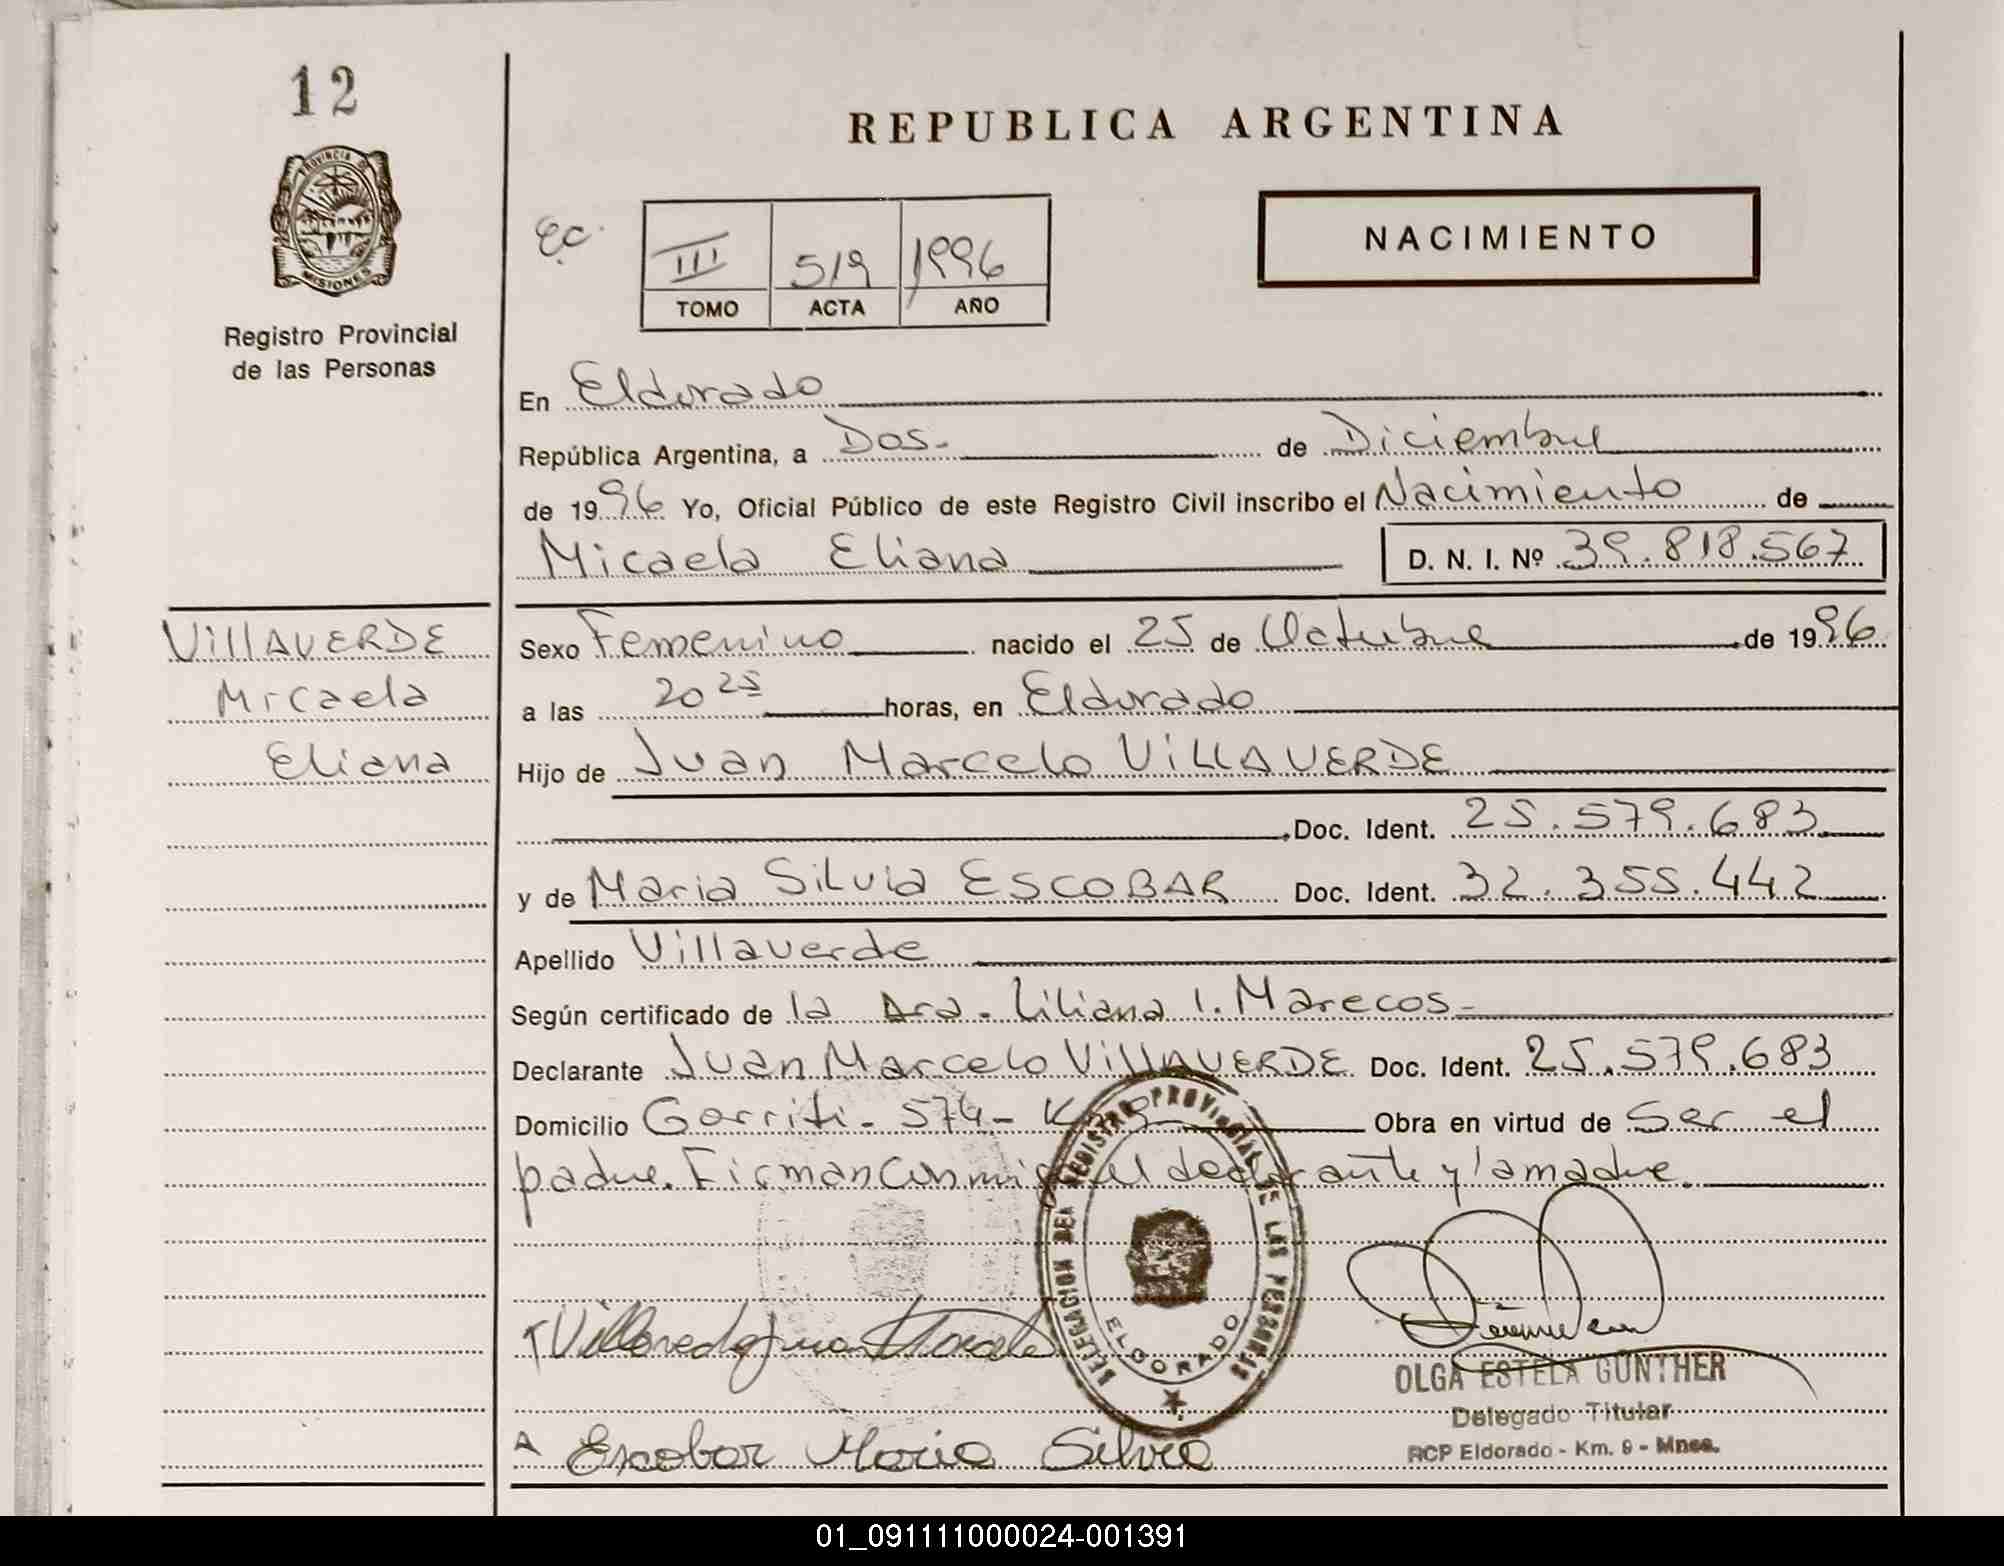 12
REPUBLICA ARGENTINA
PROVINCIA DE
MISIONES
Registro Provincial
de las Personas
Ec.
III 519 1996
TOMO ACTA AÑO
NACIMIENTO
En Eldorado
República Argentina, a Dos.- de Diciembre
de 1996 Yo, Oficial Público de este Registro Civil inscribo el Nacimiento de
Micaela Eliana D. N. I. Nº 39.818.567
VILLAVERDE
Micaela
Eliana
Sexo Femenino nacido el 25 de Octubre de 1996
a las 20 25 horas, en Eldorado
Hijo de Juan Marcelo VILLAVERDE
Doc. Ident. 25.579.683
y de Maria Silvia ESCOBAR Doc. Ident. 32.355.442
Apellido Villaverde
Según certificado de la Dra. Liliana I. Marecos-
Declarante Juan Marcelo VILLAVERDE Doc. Ident. 25.579.683
Domicilio Gorriti- 574- Km 9 Obra en virtud de Ser el
padre. Firman Conmigo el declarante y la madre.
DELEGACION DEL REGISTRO PROVINCIAL DE LAS PERSONAS
ELDORADO
OLGA ESTELA GÜNTHER
Delegado Titular
RCP Eldorado - Km. 9 - Mnes.
Escobar Maria Silvia
01_091111000024-001391